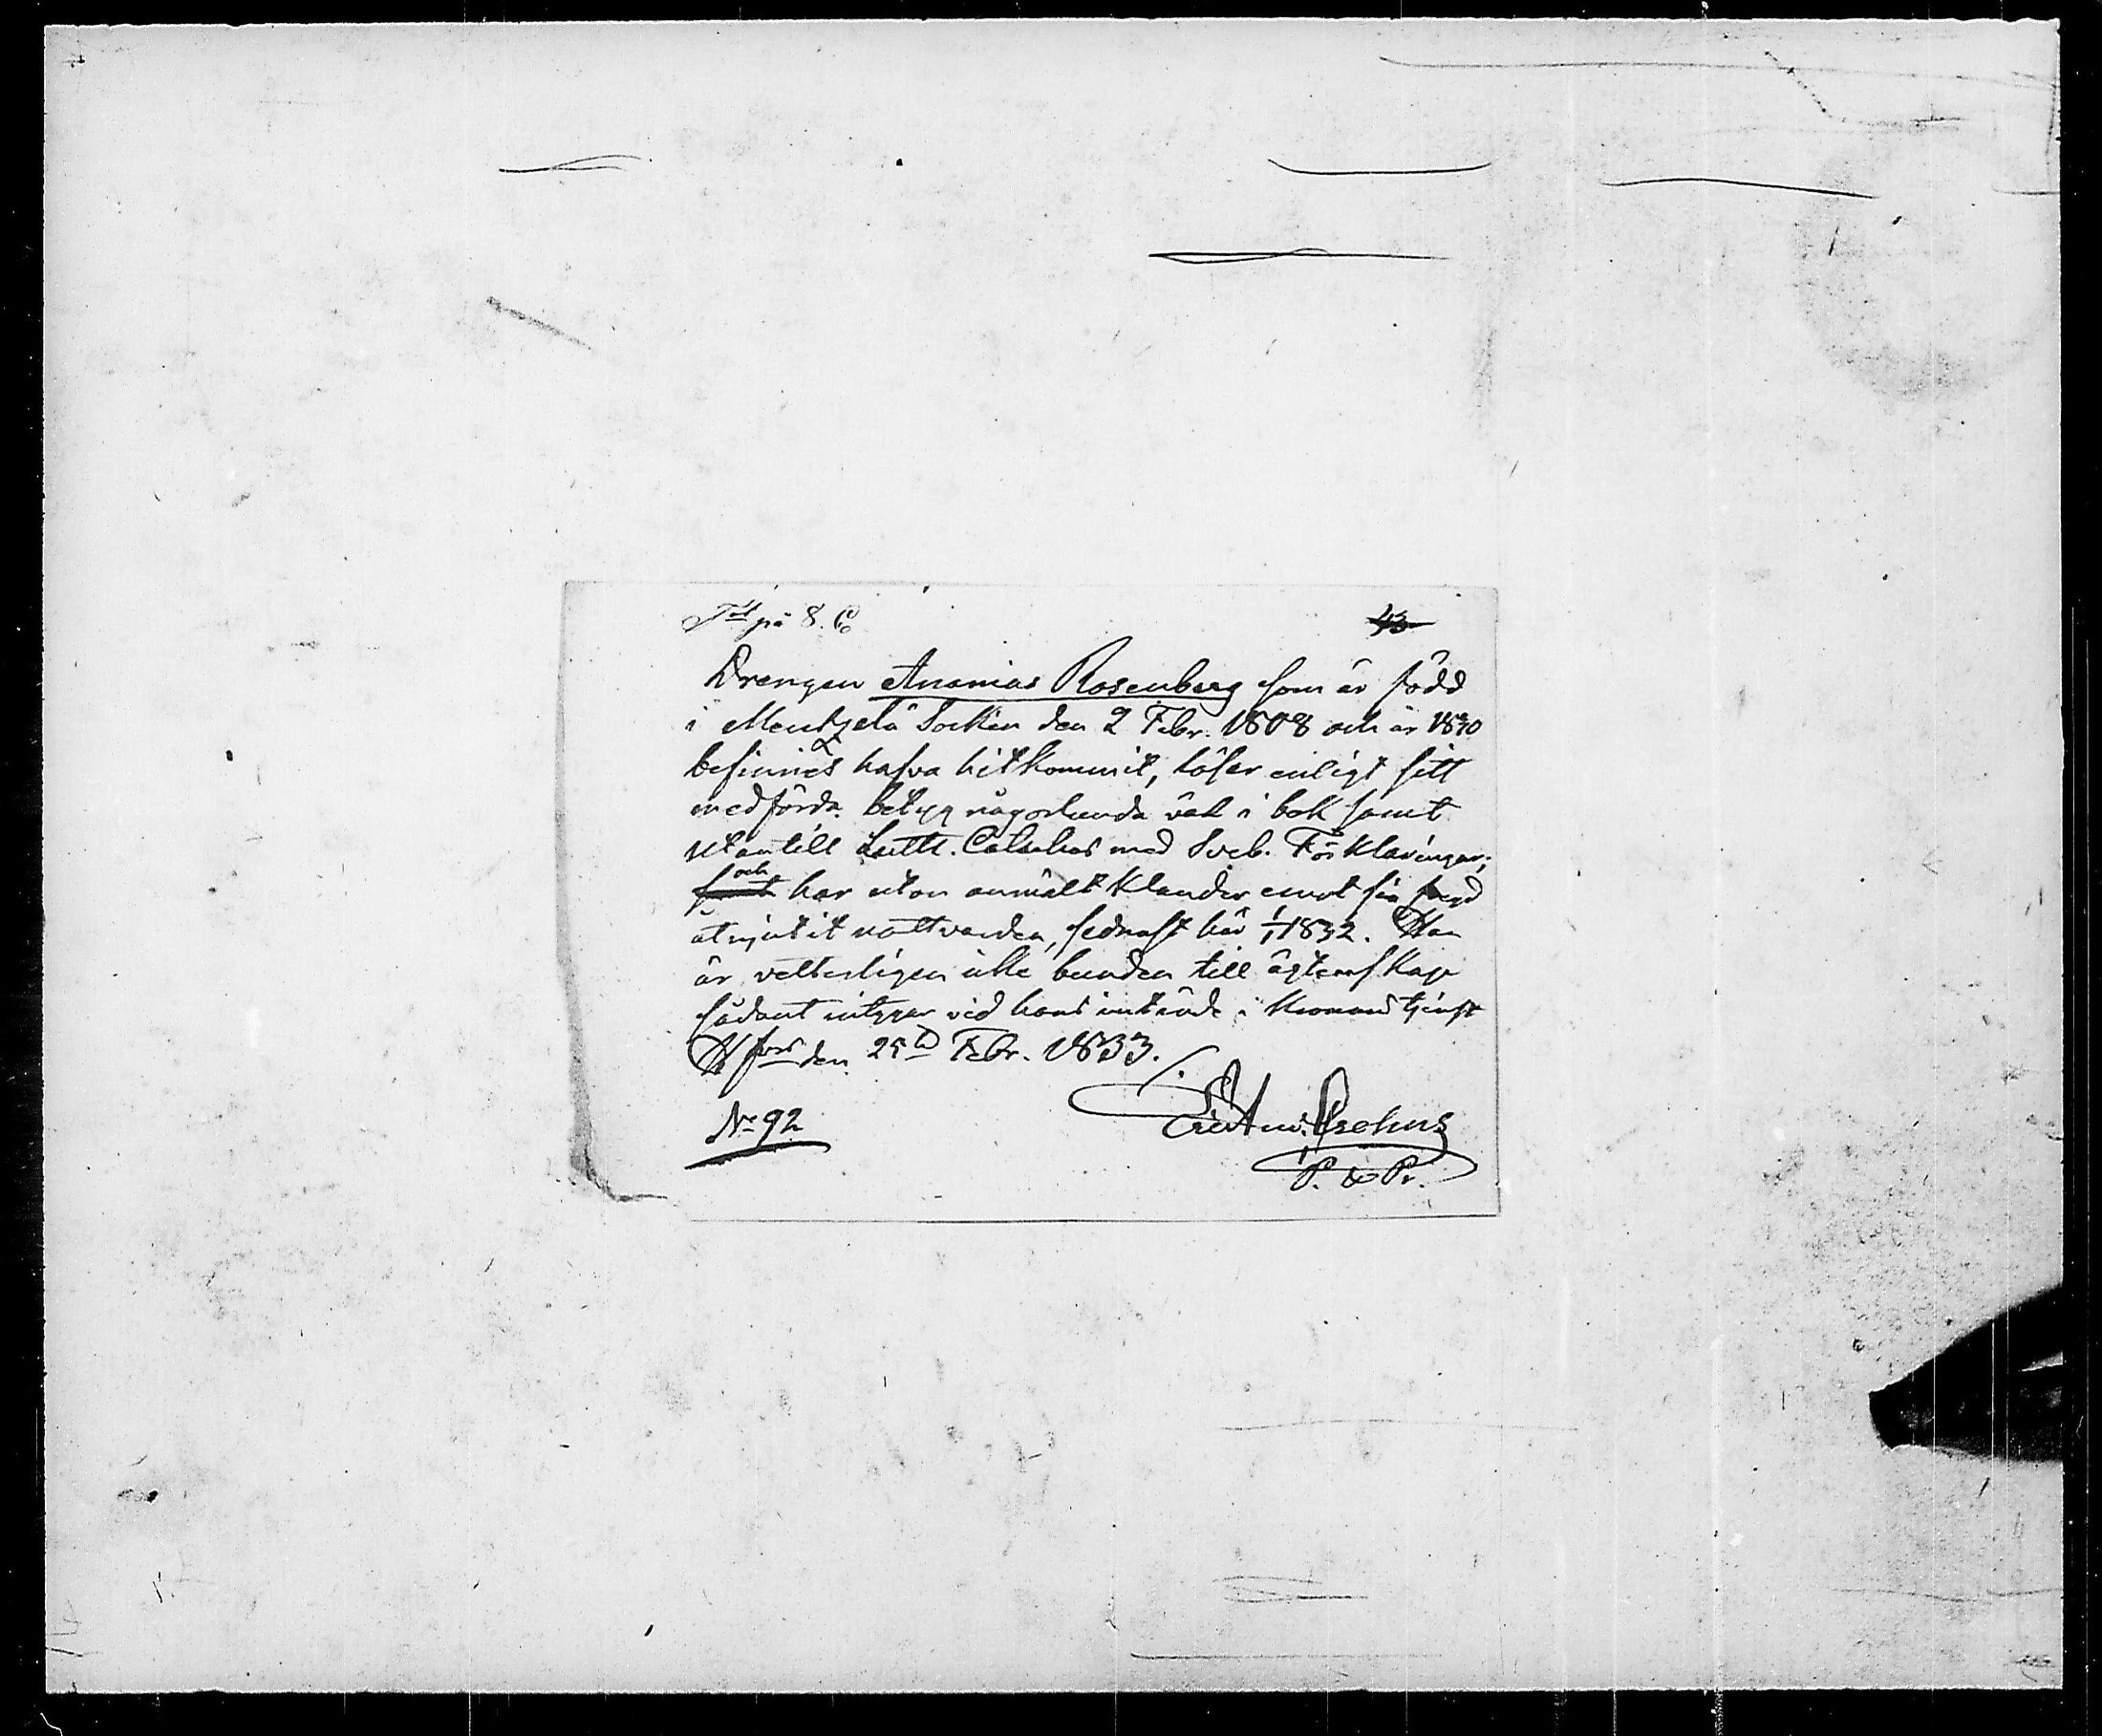 på 8. C
43
Drengen Ananias Rosenberg som är född
i Mentzelä Socken den 2 Febr. 1808 och är 1830
befinnes hafva hitkommit, läser enligt sitt
medförda betyg någorlunda väl i bok samt
utantill Luth. Cateches med Sveb. Förklaringar;
och
samt har utan anmält klander emot sin fregd
åtnjutit nattvarden, sednast här 1/1 1832. Han
är vetterligen icke bunden till ägtenskap
sådant intygar vid hans inträde i Kronans tjenst
Hfors den 25 Febr. 1833.
No 92
P. & Pr.